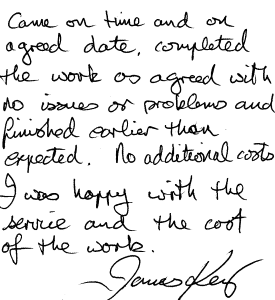 Came on time and on
agreed date, completed
the work as agreed with
no issues or problems and
finished earlier than
expected. No additional costs
I was happy with the
service and the cost
of the work.
James